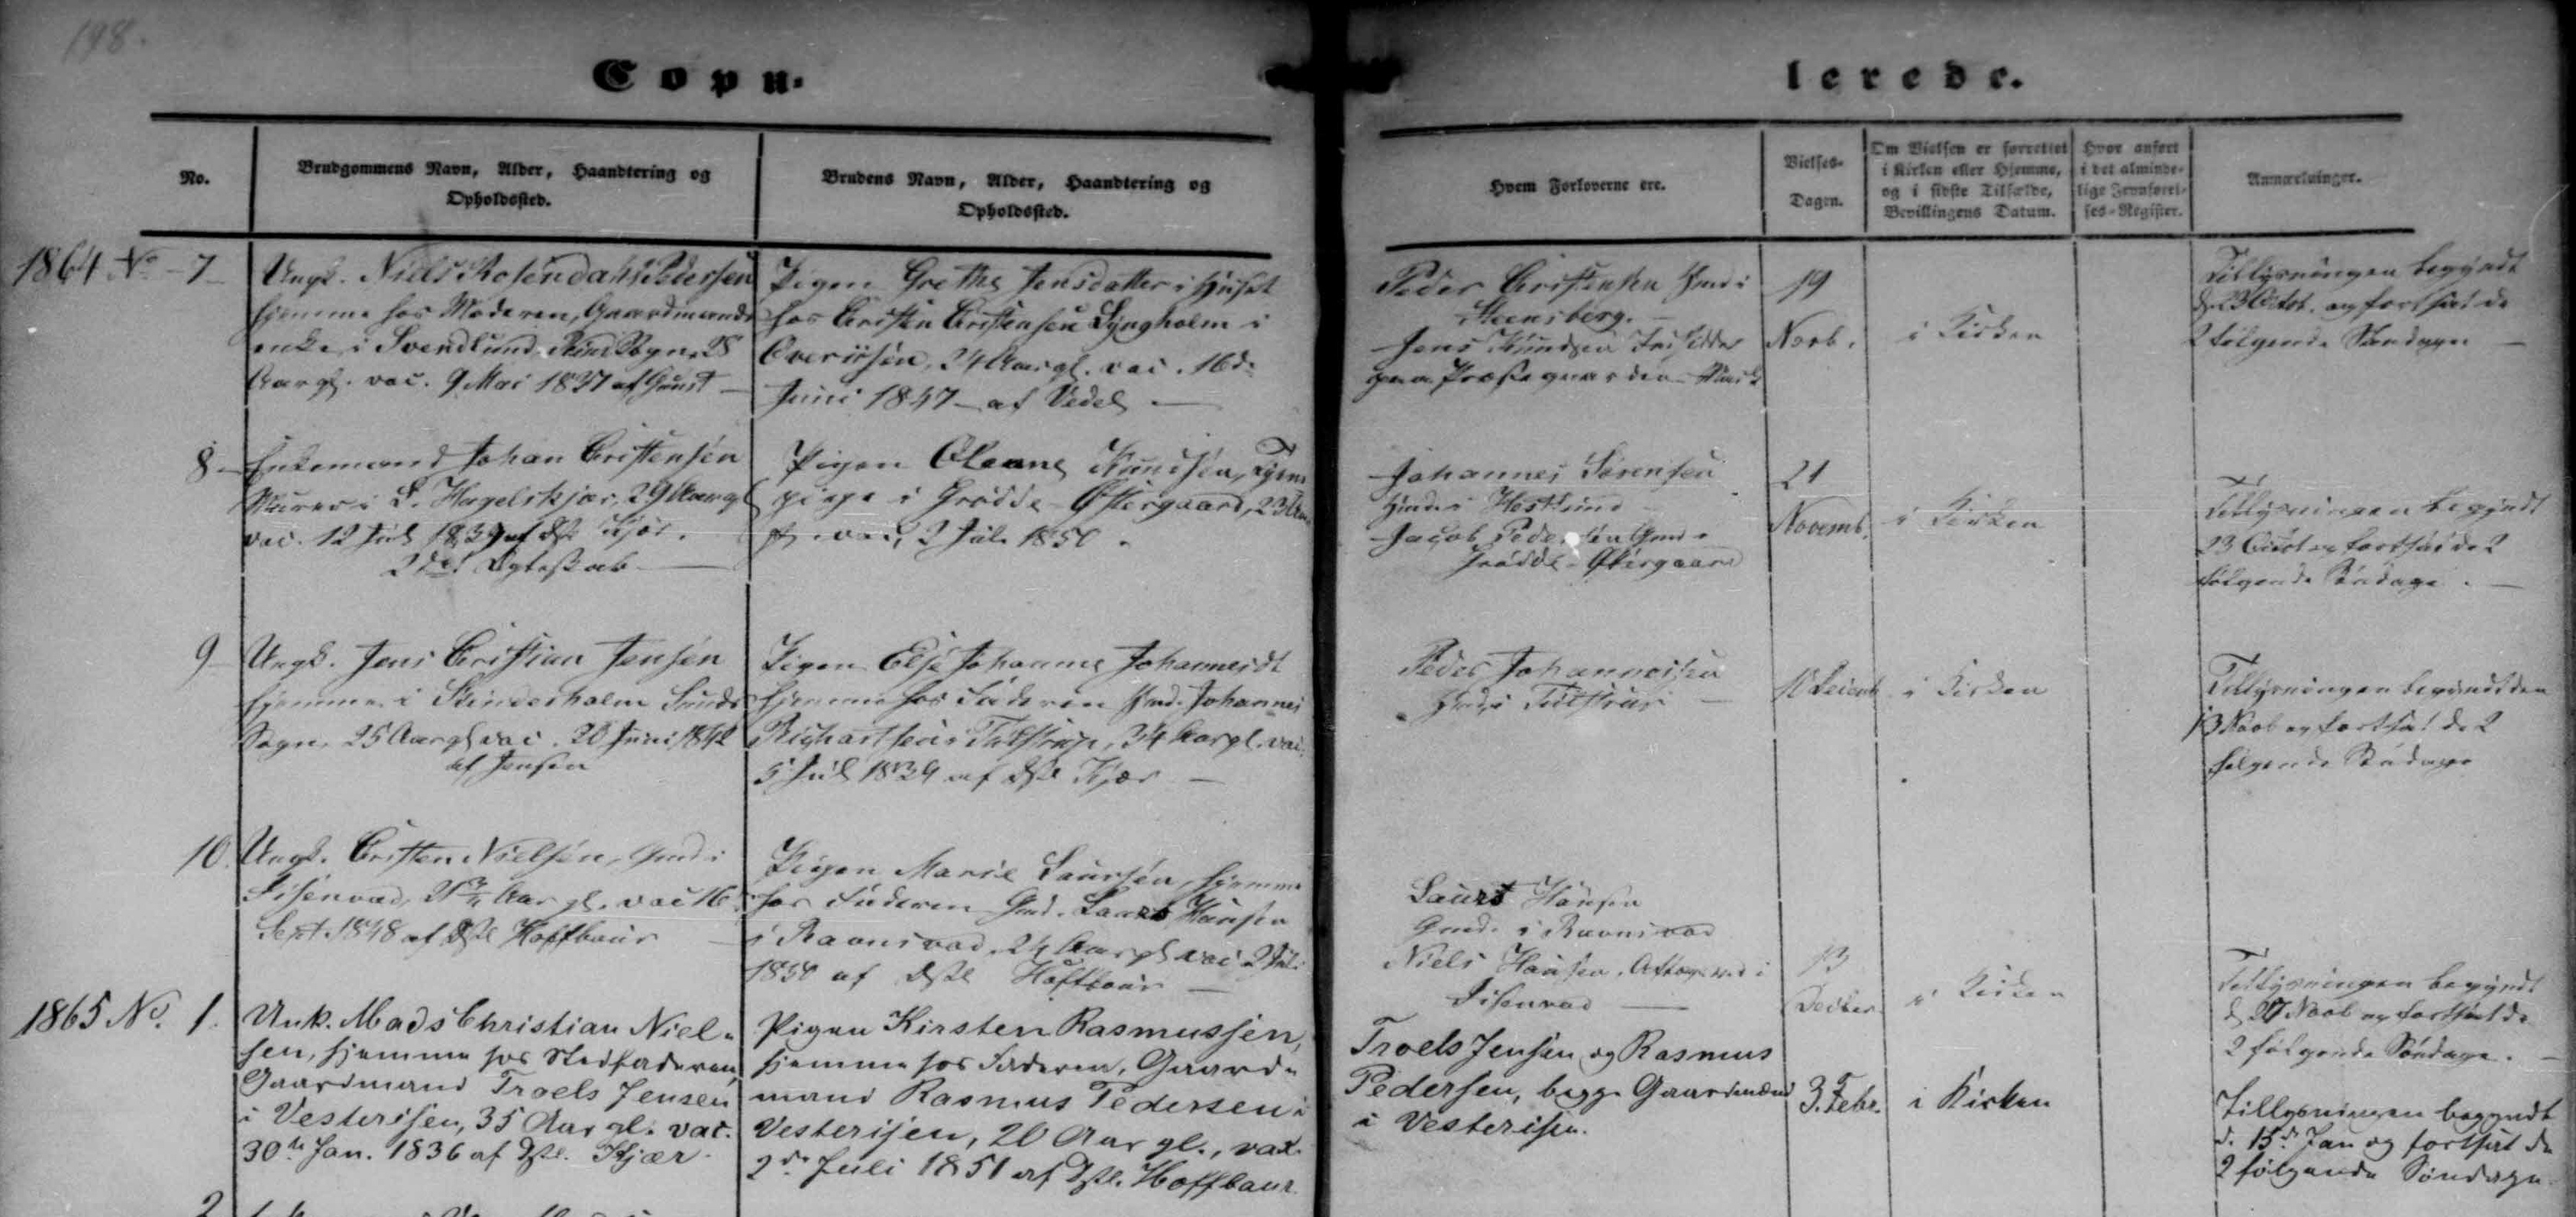 198.
Copu-
lerede.
No.
Brudgommens Navn, Alder, Haandtering og
Opholdssted.
Brudens Navn, Alder, Haandtering og
Opholdssted.
Hvem Forloverne ere.
Vielses-
Dagen.
Om Vielsen er forrettet
i Kirken eller Hjemme,
og i sidste Tilfælde,
Bevillingens Datum.
Hvor anført
i det alminde-
lige Jevnførel-
ses-Register.
Anmærkninger.
1864 No 7
Ungk. Niels Rosendahl Pedersen
hjemme hos Moderen, Gaardmands
enke i Svendlund, Rind Sogn, 28
Aar gl. vac. 9 Mai 1837 af
Pigen Grethe Jensdatter i Huset
hos Cristen Cristensen Lyngholm i
Overiisen, 24 Aar gl. vac. 16d.
Juni 1847 af Vedel
Peder Cristensen Hmd i
Steensberg.
Jens Knudsen
19
Novb.
i Kirken
Tillysningen begyndt
d. 23 Octob. og fortsat de
2 følgende Søndage
8
Enkemand Johan Cristensen
Murer i L. Hagelskjær, 29 Aar gl
vac. 12 Juli 1839 af Kjær.
2det Ægteskab
Pigen Oleane Knudsen, Tjene
pige i Grødde-Østergaard, 23 Aar
gl. vac. 2 Juli 1850.
Johannes Sørensen
Hmd i Hestlund
Jacob Pedersen Gmd i
Grødde-Østergaard
21
Novemb.
i Kirken
Tillysningen begyndt
23 Octob og fortsat de 2
følgende Søndage.
9
Ungk. Jens Cristian Jensen
hjemme i Skinderholm Sunds
Sogn, 25 Aar gl vac. 20 Juni 1842
af Jensen
Pigen Else Johanne Johannesdt
hjemme hos Faderen Hmd. Johannes
34 Aar gl. vac.
5 Juli 1839 af Kjær
Peder Johannesen
Hmd i
i Kirken
Tillysningen begyndt den
13 Novb og fortsat de 2
følgende Søndage
10.
Ungk. Cristen Nielsen, Gmd i
Iisenvad, 21¾ Aar gl. vac 16
Sept. 1848 af Hoffbaur
Pigen Marie Laursen, hjemme
hos Faderen Gmd. Laurs Hansen
i Ravnsvad, 24 Aar gl vac 2 Juli
1850 af Hoffbaur
Laurs Hansen
Gmd. i Ravnsvad
Niels Hansen, Aftægtsmd i
Iisenvad
13
Decbr
i Kirken
Tillysningen begyndt
d 27 Novb og fortsat de
2 følgende Søndage.
1865 No. 1.
Unk. Mads Christian Niel-
sen, hjemme hos Stedfaderen,
Gaardmand Troels Jensen
i Vesterisen, 35 Aar gl. vac.
30te Jan. 1836 af Dstl. Kjær.
Pigen Kirsten Rasmussen,
hjemme hos Faderen, Gaard-
mand Rasmus Pedersen i
Vesterisen, 20 Aar gl., vac.
2de Juli 1851 af Dstl. Hoffbaur.
Troels Jensen og Rasmus
Pedersen, begge Gaardmænd
i Vesterisen.
3. Febr.
i Kirken
Tillysningen begyndt
d. 15de Jan og fortsat de
2 følgende Søndage
2